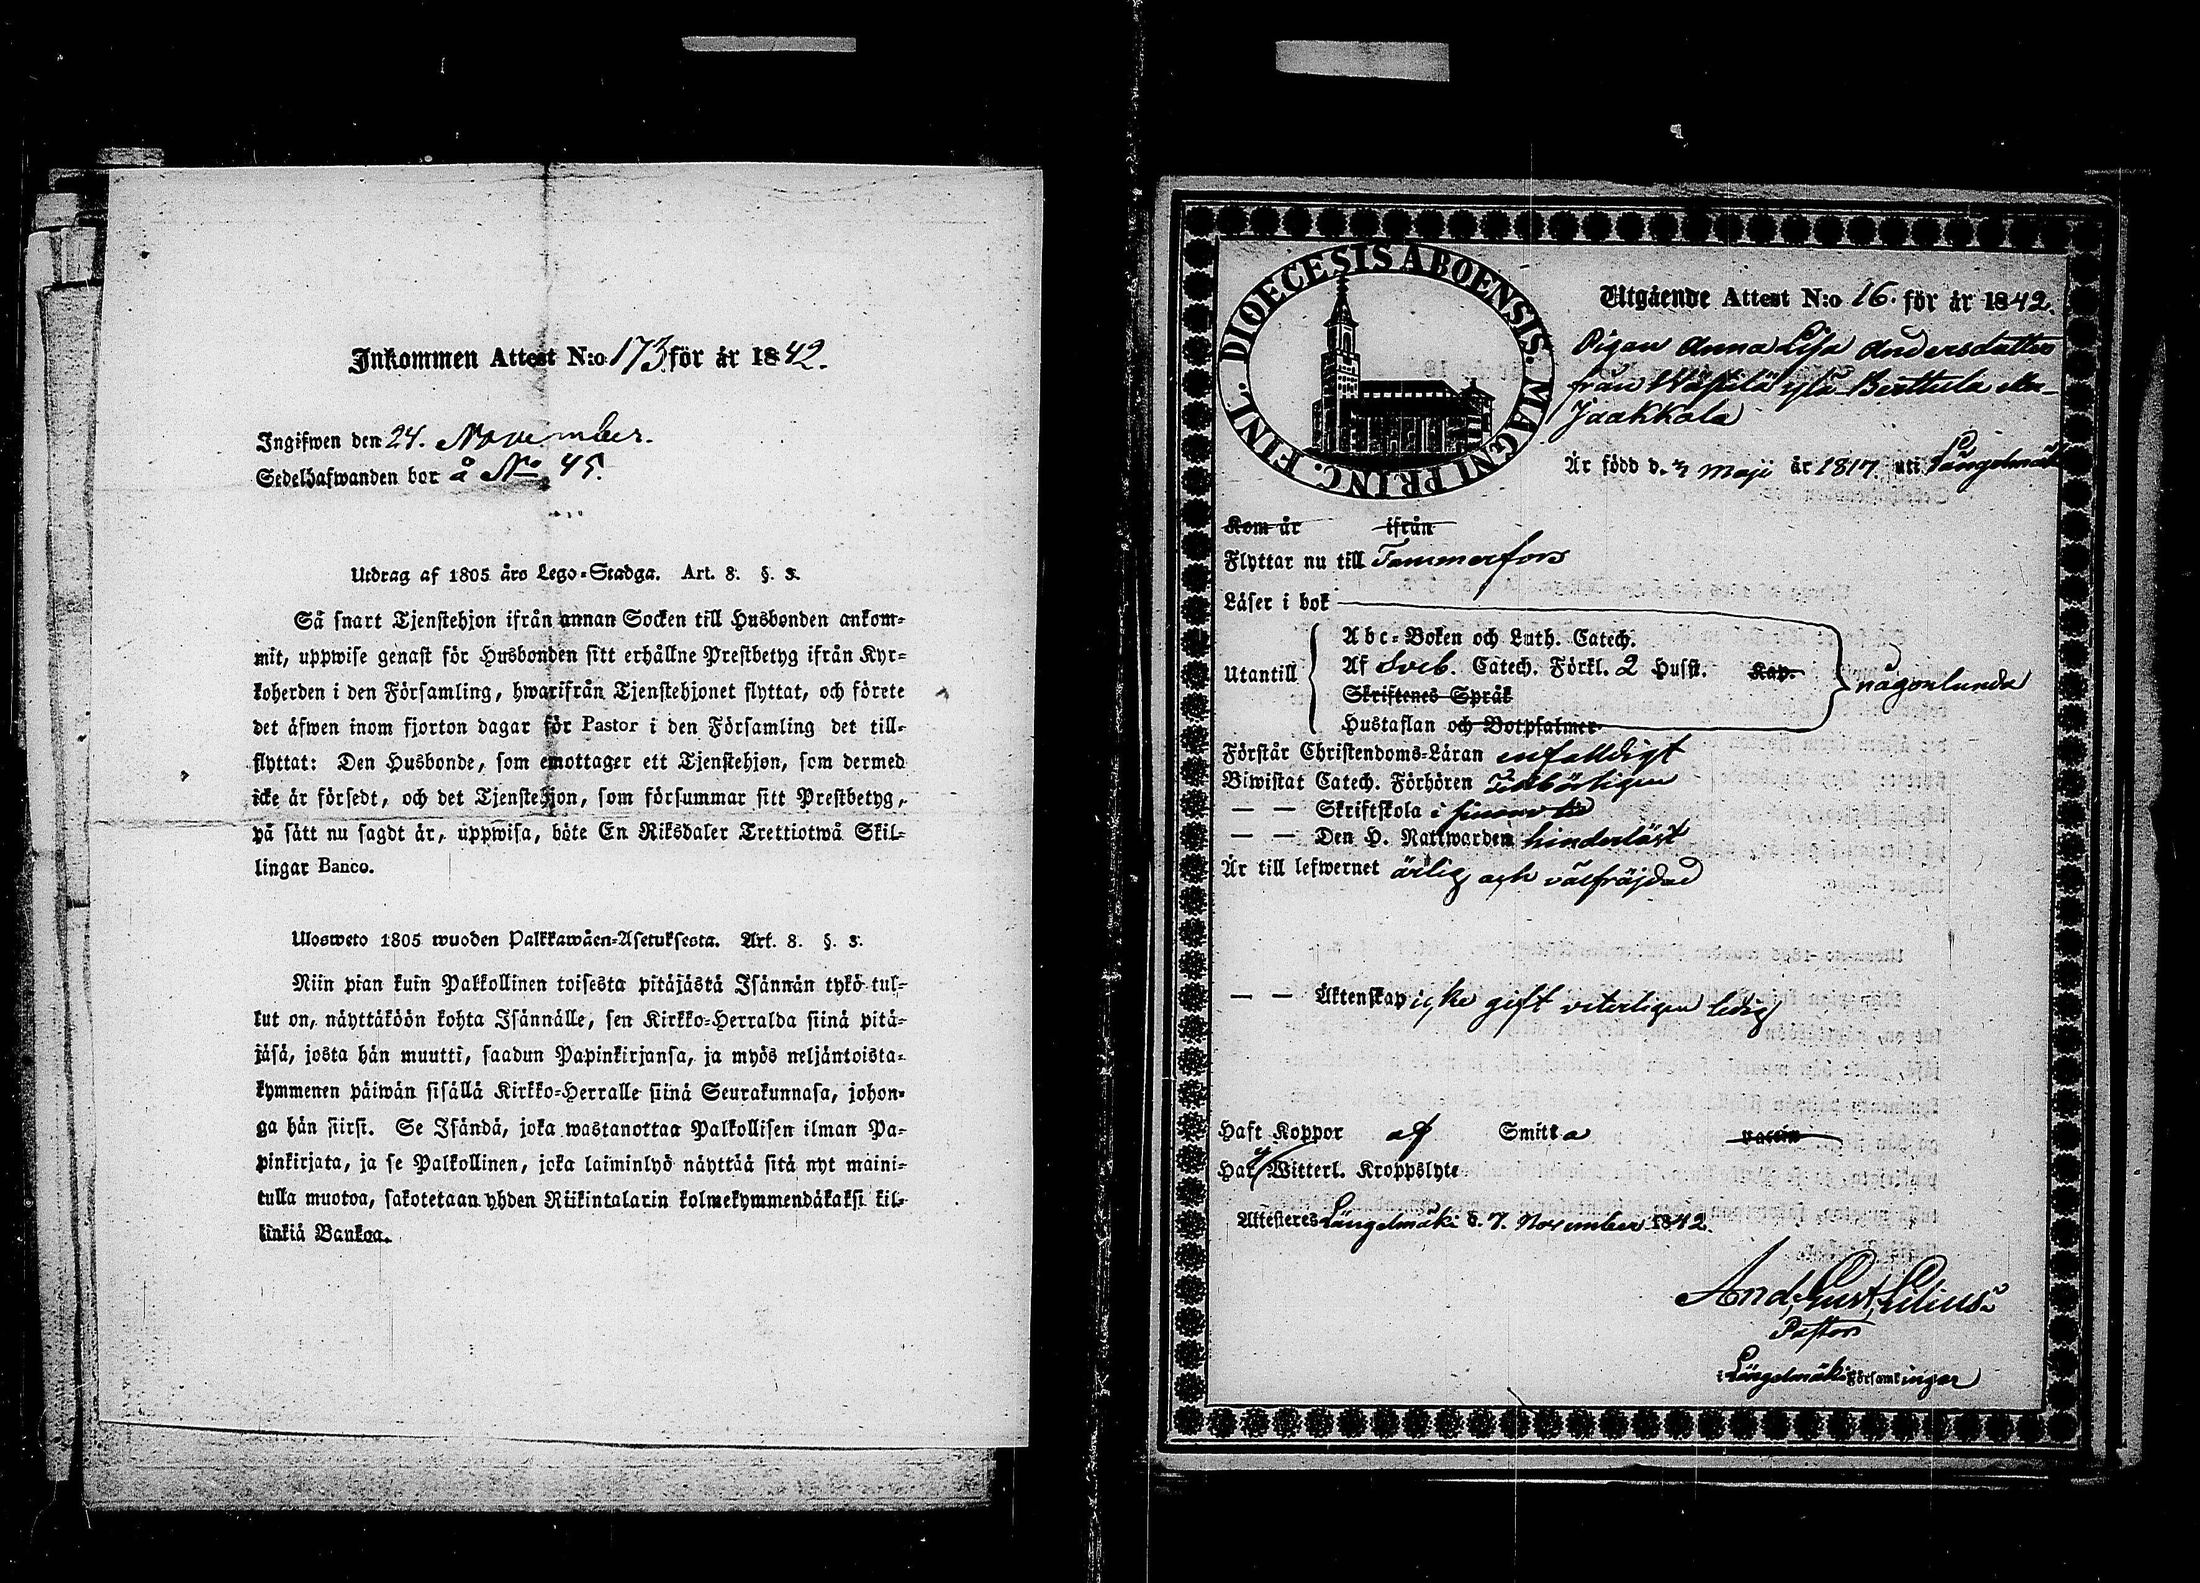 Inkommen Attest N:o 173 för år 1842.
Ingifwen den 24. November.
Sedelhafwanden bor å No 45.
Utdrag af 1805 års Lego-Stadga. Art. 8. §. 3.
Så snart Tjenstehjon ifrån annan Socken till Husbonden ankom-
mit, uppwise genast för Husbonden sitt erhållne Prestbetyg ifrån Kyr-
koherden i den Församling, hwarifrån Tjenstehjonet flyttat, och förete
det äfwen inom fjorton dagar för Pastor i den Församling det till-
flyttat: Den Husbonde, som emottager ett Tjenstehjon, som dermed
icke är försedt, och det Tjenstehjon, som försummar sitt Prestbetyg,
på sätt nu sagdt är, uppwisa, böte En Riksdaler Trettiotwå Skil-
lingar Banco.
Ulosweto 1805 wuoden Palkkawäen-Asetuksesta. Art. 8. §. 3.
Niin pian kuin Palkollinen toisesta pitäjästä Isännän tykö tul-
lut on, näyttäköön kohta Isännälle, sen Kirkko-Herralda siinä pitä-
jäsä, josta hän muutti, saadun Papinkirjansa, ja myös neljäntoista-
kymmenen päiwän sisällä Kirkko-Herralle siinä Seurakunnasa, johon-
ga hän siirsi. Se Isändä, joka wastanottaa Palkollisen ilman Pa-
pinkirjata, ja se Palkollinen, joka laiminlyö näyttää sitä nyt maini-
tulla muotoa, sakotetaan yhden Riikintalarin kolmekymmendäkaksi kil-
linkiä Bankoa.
DIOECESIS ABOENSIS. MAGNI PRINC. FINL.
Utgående Attest N:o 16. för år 1842.
Pigan Anna Lisa Andersdotter
från Wästilä Bertula
Jaakkola
Är född d. Maji år 1817 uti Längelmäki
Kom år ifrån
Flyttar nu till Tammerfors
Läser i bok
Utantill
Abc-Boken och Luth. Catech.
Af Sveb. Catech. Förkl. 2 Hufst. Kap.
Skriftenes Språk
Hustaflan och Botpsalmer
någorlunda
Förstår Christendoms-Läran enfaldigt
Biwistat Catech. Förhören Tillbörligen
— — Skriftskola i
— — Den H. Nattwarden hinderlöst
Är till lefwernet ärlig och välfräjdad
— — Äktenskap icke gift veterligen ledig
Haft Koppor af Smitta vaccin
Har ej Witterl. Kroppslyte
Attesteras Längelmäki d. 7. November 1842.
And. Gust. Lilius.
Pastor
i Längelmäki Församlingar